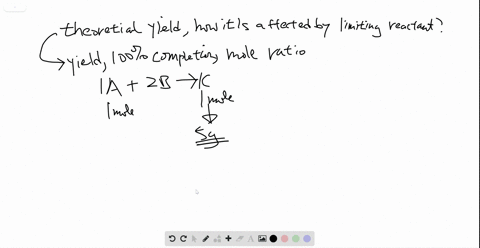 theoretial yield, how it is affected by limiting reactant?
yield, 100% completion, mole ratio
1A + 2B → 1C
1 mole 1 mole
5g